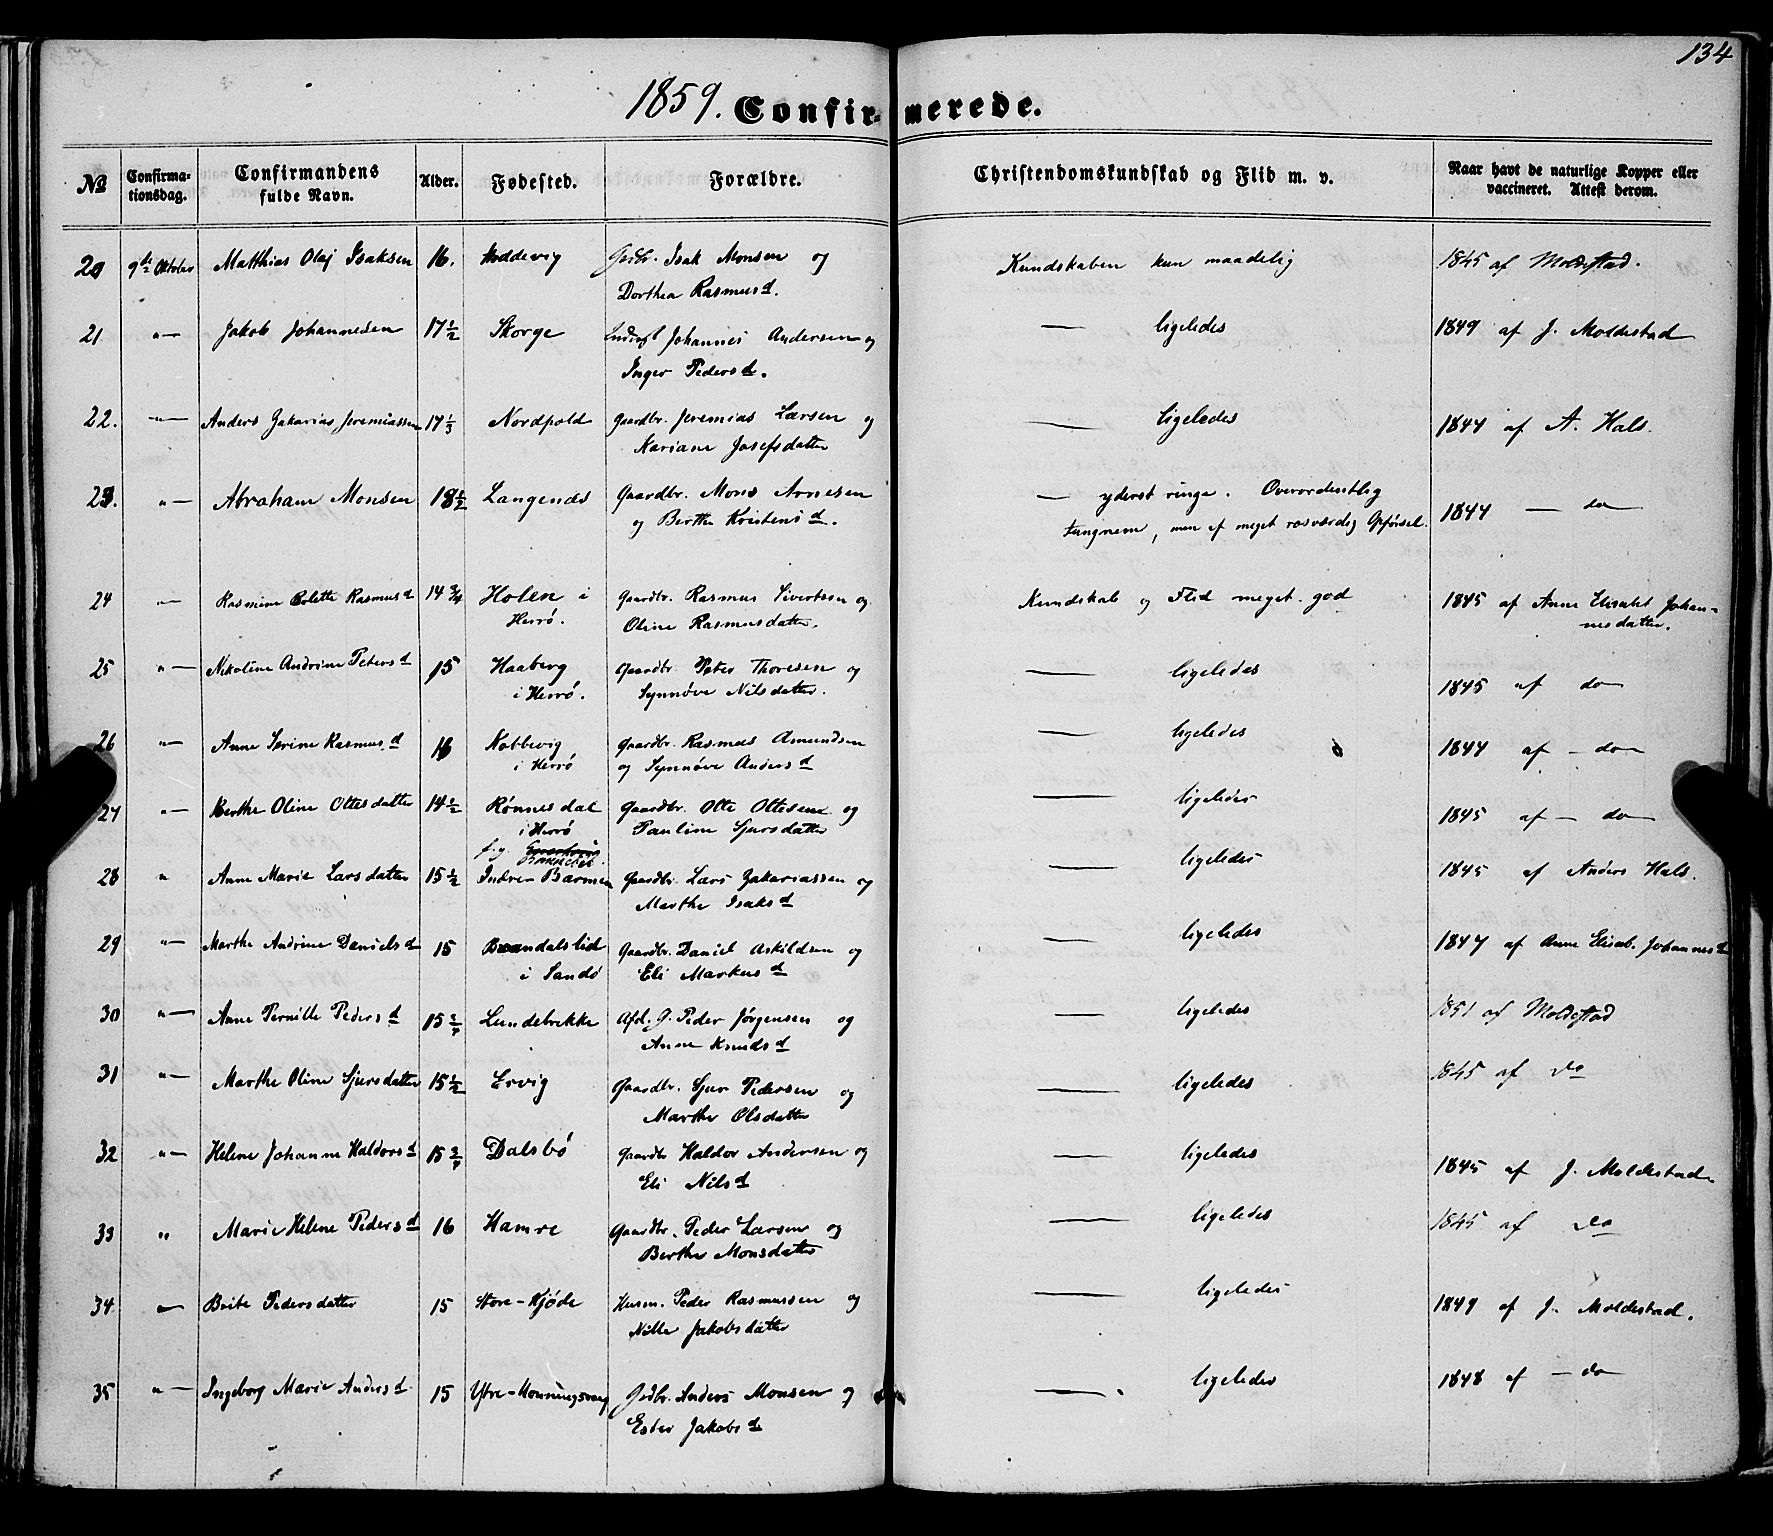 134
1859. Confirmerede.
No Confirmationsdag. Confirmandens fulde Navn. Alder. Fødested. Forældre. Christendomskundskab og Flid m. v. Naar havt de naturlige Kopper eller vaccineret. Attest derom.
20 9de Oktober Matthias Olaj Isaksen 16. Hoddevig Grdbr. Isak Monsen og Kundskaben kun maadelig 1845 af Moldestad.
Dorthea Rasmusd.
21 "— Jakob Johannesen 17 1/2 Skorge Johannes Andersen og — ligeledes 1849 af J. Moldestad
Inger Pedersd.
22. "— Anders Zakarias Jeremiassen 17 1/3 Nordpold Gaardbr. Jeremias Larsen og — ligeledes 1847 af A. Hals.
Mariane Josefsdatter
23. "— Abraham Monsen 18 1/2 Langenæs Gaardbr. Mons Arnesen — yderst ringe. Overordentlig 1847 — do
og Berthe Kristensd. tungnem, men af meget rosværdig Opførsel.
24 "— Rasmine Colette Rasmusd 14 3/4 Holen i Gaardbr. Rasmus Sivertsen og Kundskab og Flid meget god 1845 af Anne Elisabet Johan-
Herrø. Oline Rasmusdatter. nesdatter.
25 "— Nikoline Andrine Petersd 15 Haaberg Gaardbr. Peter Thoresen og — ligeledes 1845 af do
i Herrø. Synnøve Nilsdatter.
26 "— Anne Serine Rasmusd 16 Nobbevig Gaardbr. Rasmus Amundsen — ligeledes 1847 af — do
i Herrø og Synnøve Andersd
27 "— Berthe Oline Ottesdatter 14 1/2 Rønnesdal Gaardbr. Otte Ottesen og — ligeledes 1845 af — do
i Herrø Pauline Sjursdatter
28 " Anne Marie Larsdatter 15 1/2 Indre Barmen Gaardbr. Lars Zakariassen og — ligeledes 1845 af Anders Hals.
Marthe Isaksd
29 "— Marthe Andrine Danielsd 15 Brandalslid Gaardbr. Daniel Askildsen og — ligeledes 1847 af Anne Elisab. Johannesd
i Sandø Eli Markusd
30 "— Anne Pernille Pedersd 15 3/4 Lundebrekke Afd. G. Peder Jørgensen og — ligeledes 1851 af Moldestad
Anne Knudsd
31 "— Marthe Oline Sjursdatter 15 1/2 Ervig Gaardbr. Sjur Pedersen og — ligeledes 1845 af do
Marthe Olsdatter
32 "— Helene Johanne Haldorsd 15 3/4 Dalsbø Gaardbr Haldor Andersen og — ligeledes 1845 af J. Moldestad
Eli Nilsd
33 " Marie Helene Pedersd 16 Hamre Gaardbr. Peder Larsen og — ligeledes 1845 af do
Berthe Monsdatter
34 — Brite Pedersdatter 15 Store-Kjøde Husm. Peder Rasmussen og — ligeledes 1849 af J. Moldestad.
Nille Jakobsdatter
35 "— Ingeborg Marie Andersd 15 Ytre-Honningsvaag Grdbr. Anders Monsen og — ligeledes 1848 af — do
Ester Jakobsd